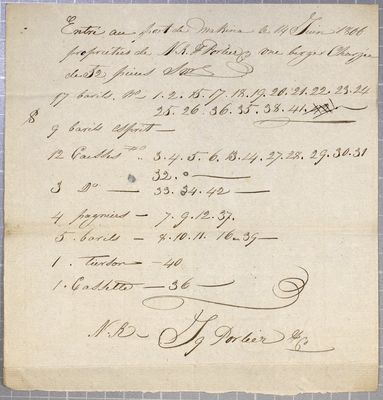 Entré au port de makina le 14 Juin 1806
proprietés de J. & F. Porlier une berge Chargée
de 52 pieces
17 barils No 1. 2. 15. 17. 18. 19. 20. 21. 22. 23. 24
25. 26. 36. 35. 38. 41.
9 barils esprit
12 Caisses No 3. 4. 5. 6. 13. 14. 27. 28. 29. 30. 31
32.
3 Do — 33. 34. 42 —
4 pagniers — 7. 9. 12. 37.
5. barils — 8. 10. 11. 16. 39 —
1. — 40.
1. Cassette — 36 —
Jq Porlier